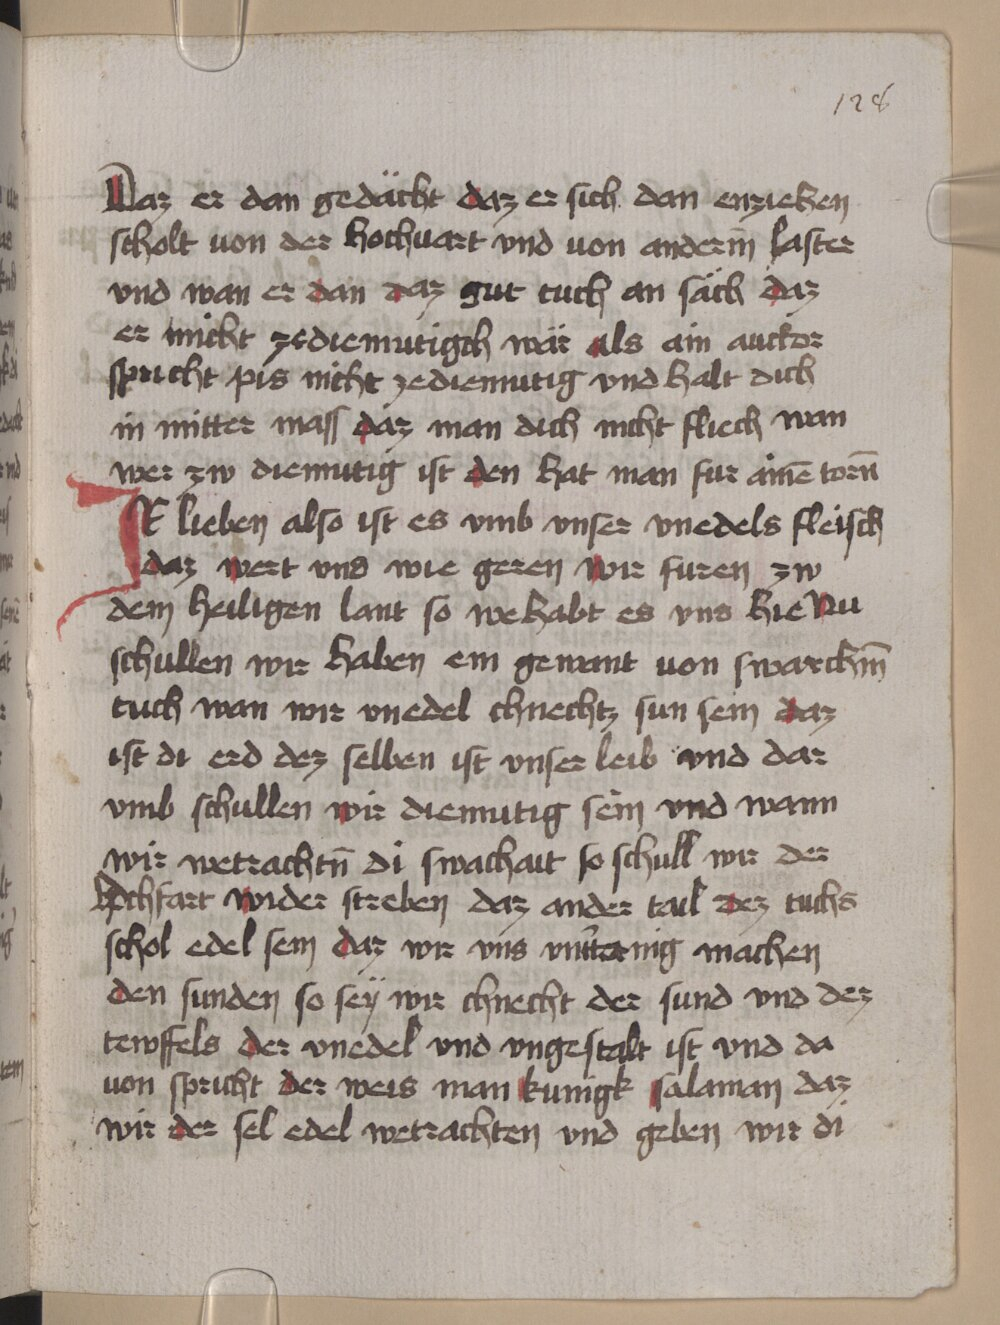 128
Daz er dan gedächt daz er sich dan enziehen
scholt von der hochvart vnd von anderm̄ laster
vnd wan er dan daz gut tuch an säch daz
er nicht zediemutigch wär als ain auctor
spricht pis nicht zediemutig vnd halt dich
in mitter mass daz man dich nicht fliech wan
wer zw diemutig ist den hat man fur aine̅ torn̄
Ir lieben also ist es vmb vnser vnedels fleisch
daz wert vns wie geren wir furen zw
dem heiligen lant so wehabt es vns hie Nu
schullen wir haben ein gewant von swarchm̄
tuch wan wir vnedel chnechtz sun sein daz
ist di erd dez selben ist vnser leib vnd dar
vmb schullen wir diemutig sein vnd wann
wir wetrachtn̄ di swachait so schull wir der
hochfart wider streben daz ander tail dez tuchs
schol edel sein daz wir vns vntt̄ænig machen
den sunden so seÿ wir chnecht der sund vnd dez
tewffels der vnedel vnd vngestalt ist vnd da
von spricht der weis man kunigk salaman daz
wir der sel edel wetrachten vnd geben wir di